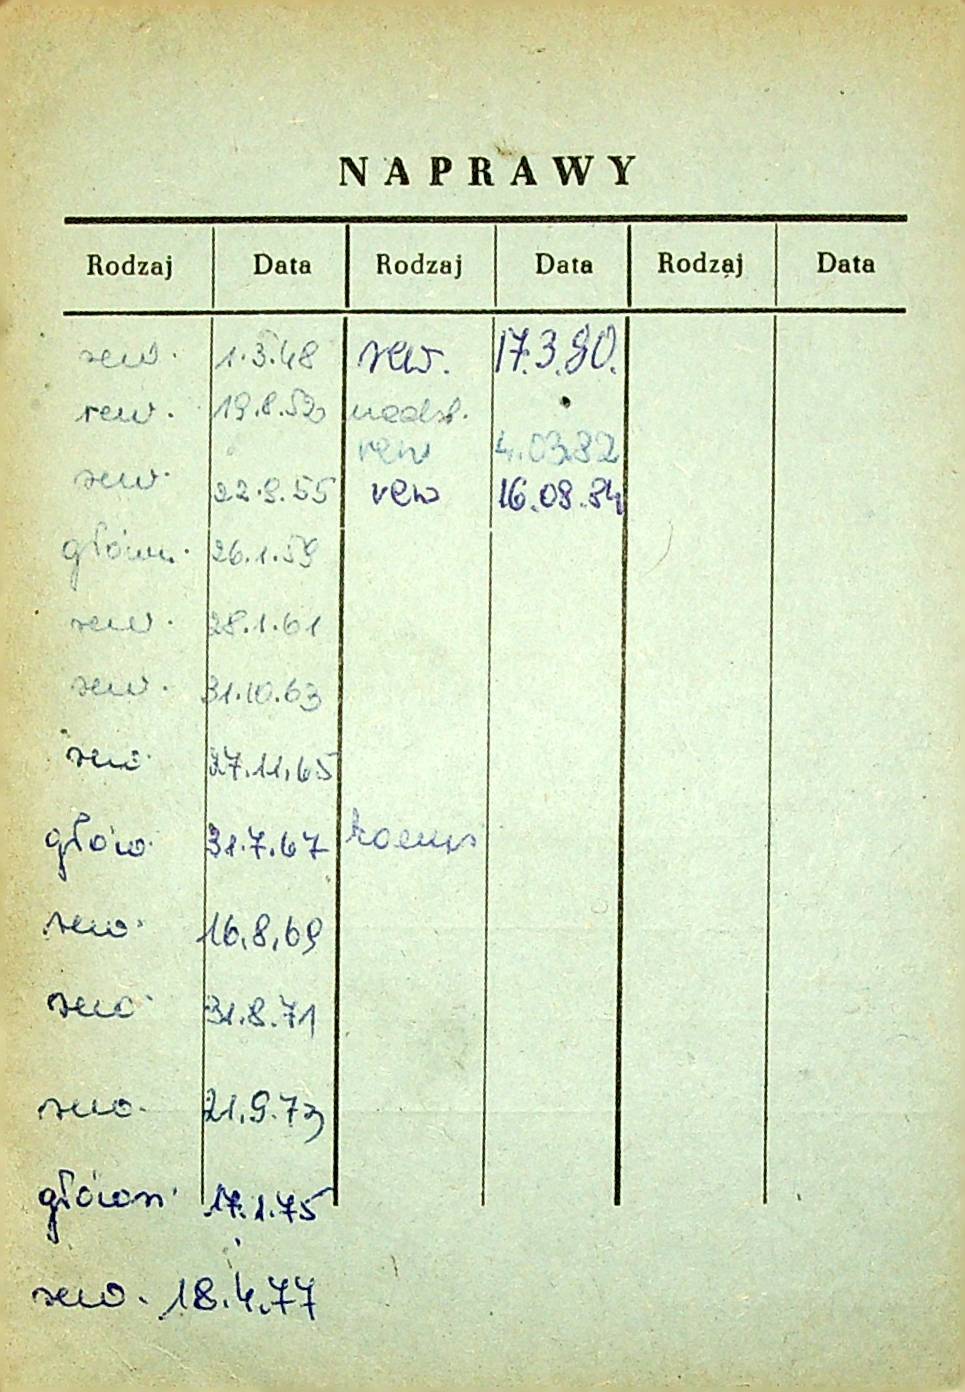 NAPRAWY
Rodzaj Data Rodzaj Data Rodzaj Data
rew. 1.3.48 rew. 17.3.80.
rew. 19.8.52 nadst.
rew 4.03.82
rew. 22.9.55 rew 16.08.84
główn. 26.1.59
rew. 28.1.61
rew. 31.10.63
rew. 27.11.65
głów. 31.7.67
rew. 16.8.69
rew. 31.8.71
rew. 21.9.73
główn. 17.1.75
rew. 18.4.77